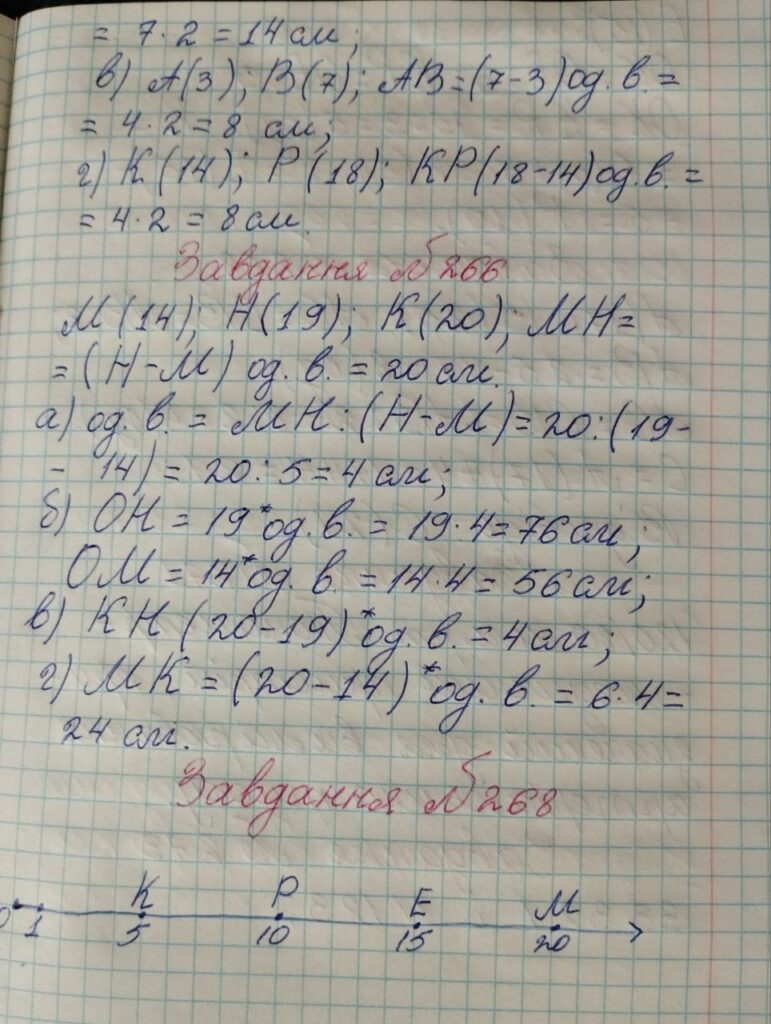 = 7·2 = 14 см;
в) А(3); В(7); АВ=(7-3)од. в. =
= 4·2 = 8 см;
г) К(14); Р(18); КР(18-14)од. в. =
= 4·2 = 8 см.
Завдання №266
М(14); Н(19); К(20); МН=
=(Н-М) од. в. = 20 см.
а) од. в. = МН:(Н-М)=20:(19-
- 14) = 20:5=4 см;
б) ОН = 19*од. в. = 19·4=76 см;
ОМ = 14*од. в. = 14·4= 56 см;
в) КН (20-19)*од. в. = 4 см;
г) МК = (20-14)*од. в. = 6·4=
24 см.
Завдання №268
К Р Е М
0 1 5 10 15 20